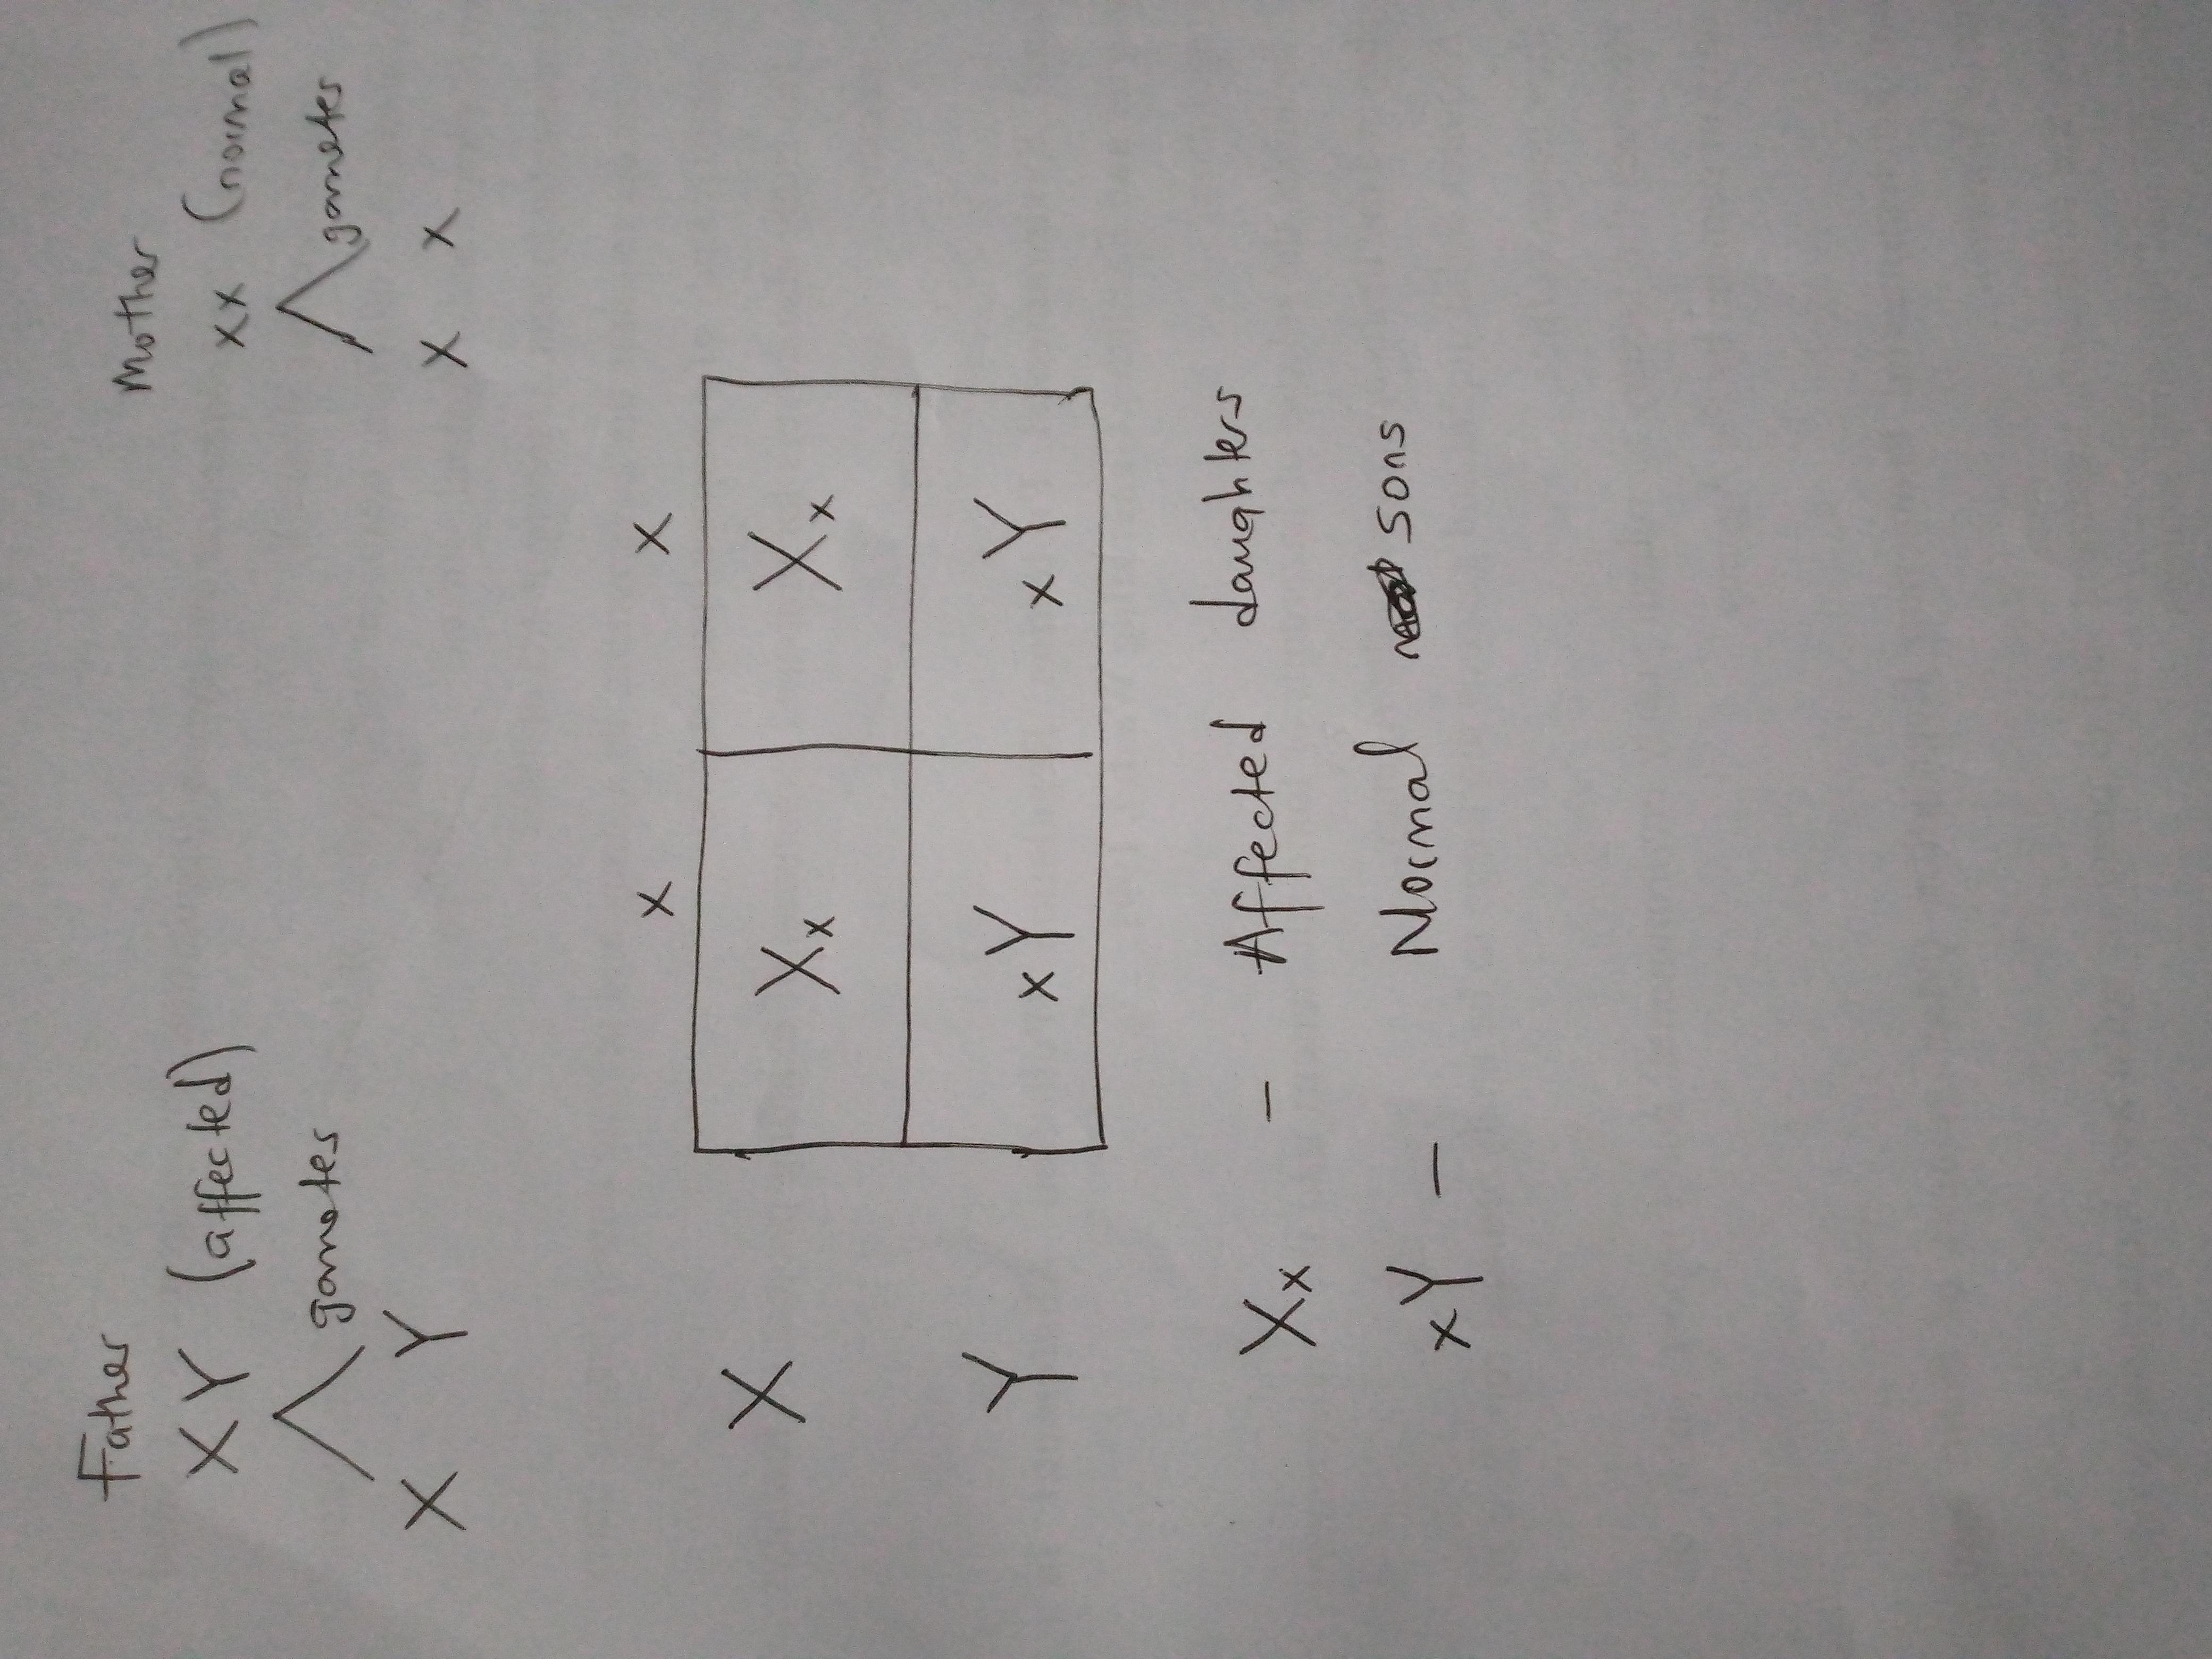 Father Mother
XY (affected) xx (normal)
gametes gametes
X Y x x
x x
X Xx Xx
Y xY xY
Xx - Affected daughters
xY - Normal sons